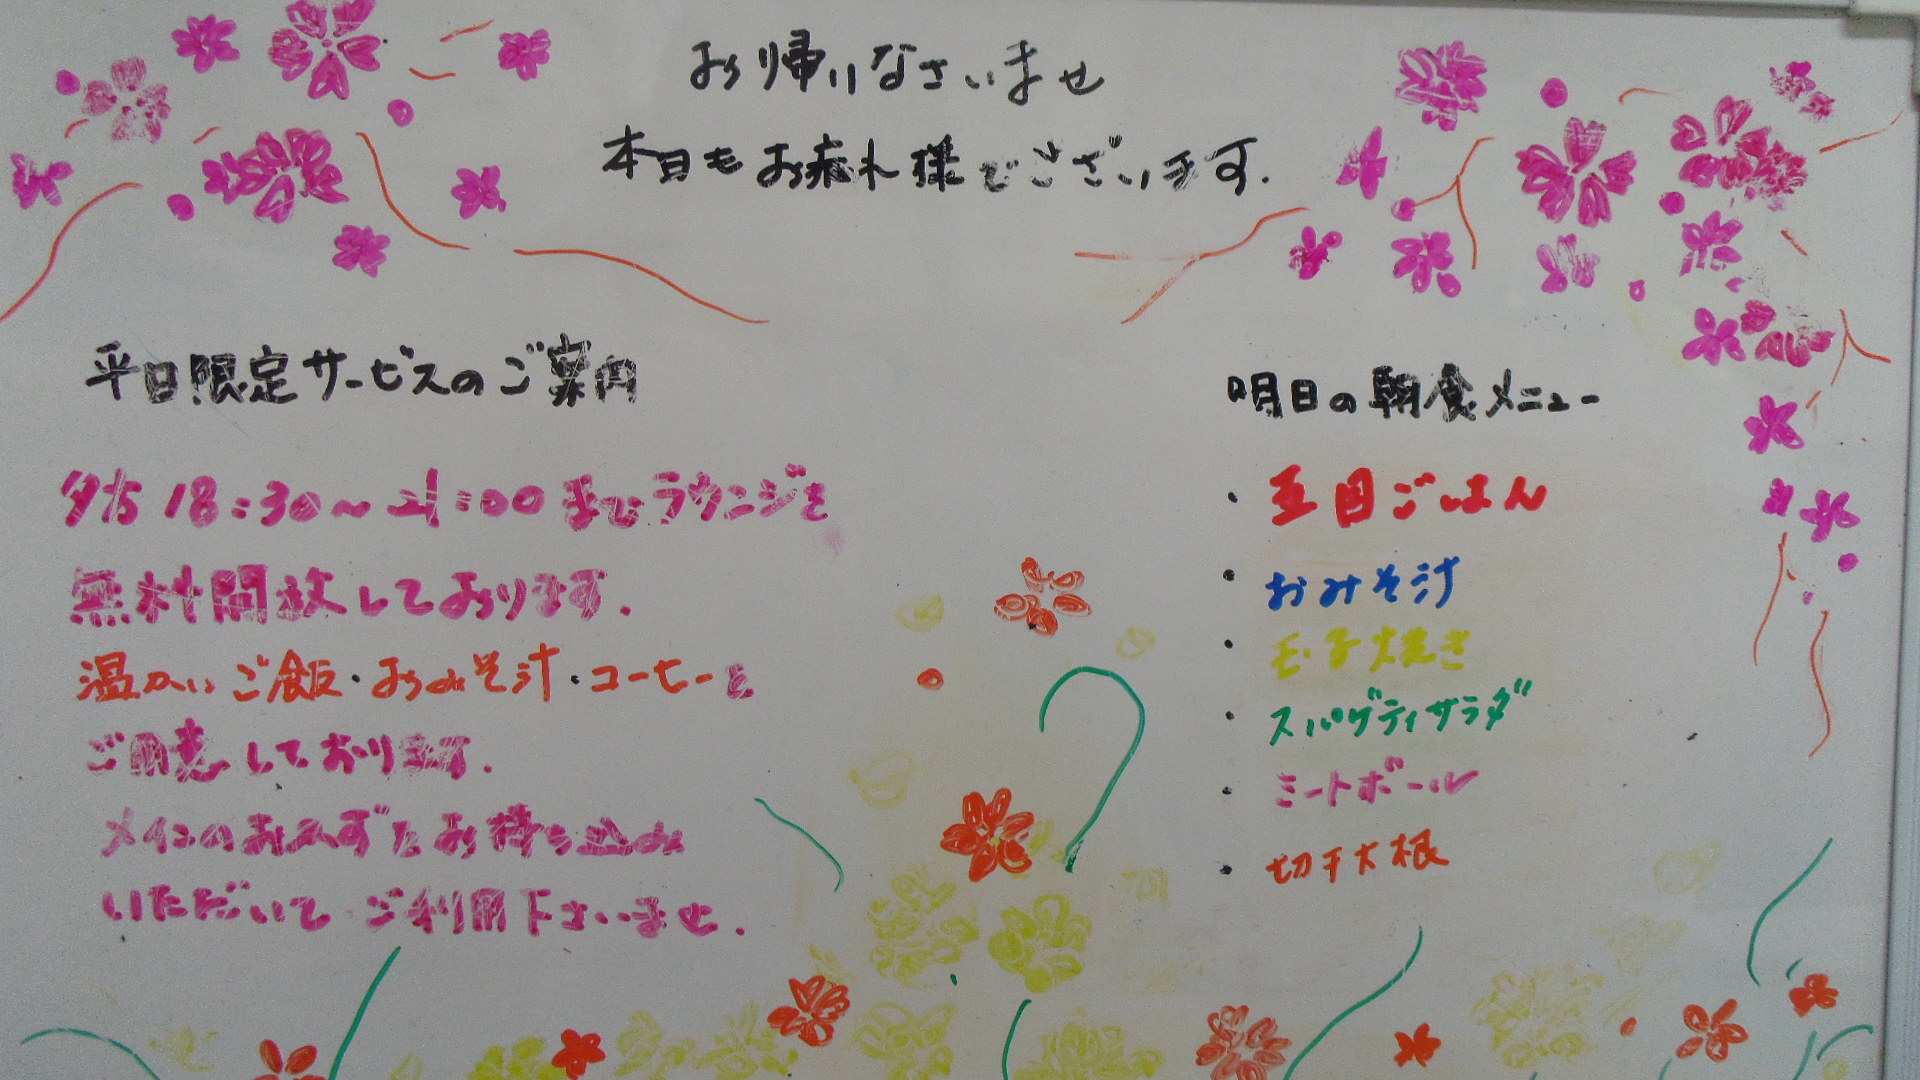 お帰りなさいませ
本日もお疲れ様でございます.
平日限定サービスのご案内
夕方18:30～21:00までラウンジを
無料開放しております.
温かいご飯・おみそ汁・コーヒーを
ご用意しております.
メインのおかずをお持ち込み
いただいてご利用下さいませ.
明日の朝食メニュー
・五目ごはん
・おみそ汁
・玉子焼き
・スパゲティサラダ
・ミートボール
・切干大根